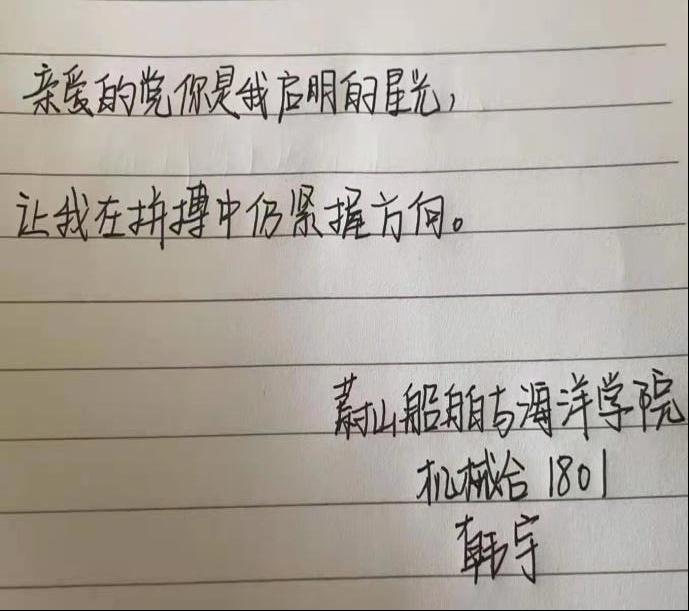 亲爱的党你是我启明的星光，
让我在拼搏中仍紧握方向。
蔚山船舶与海洋学院
机械合1801
韩宇